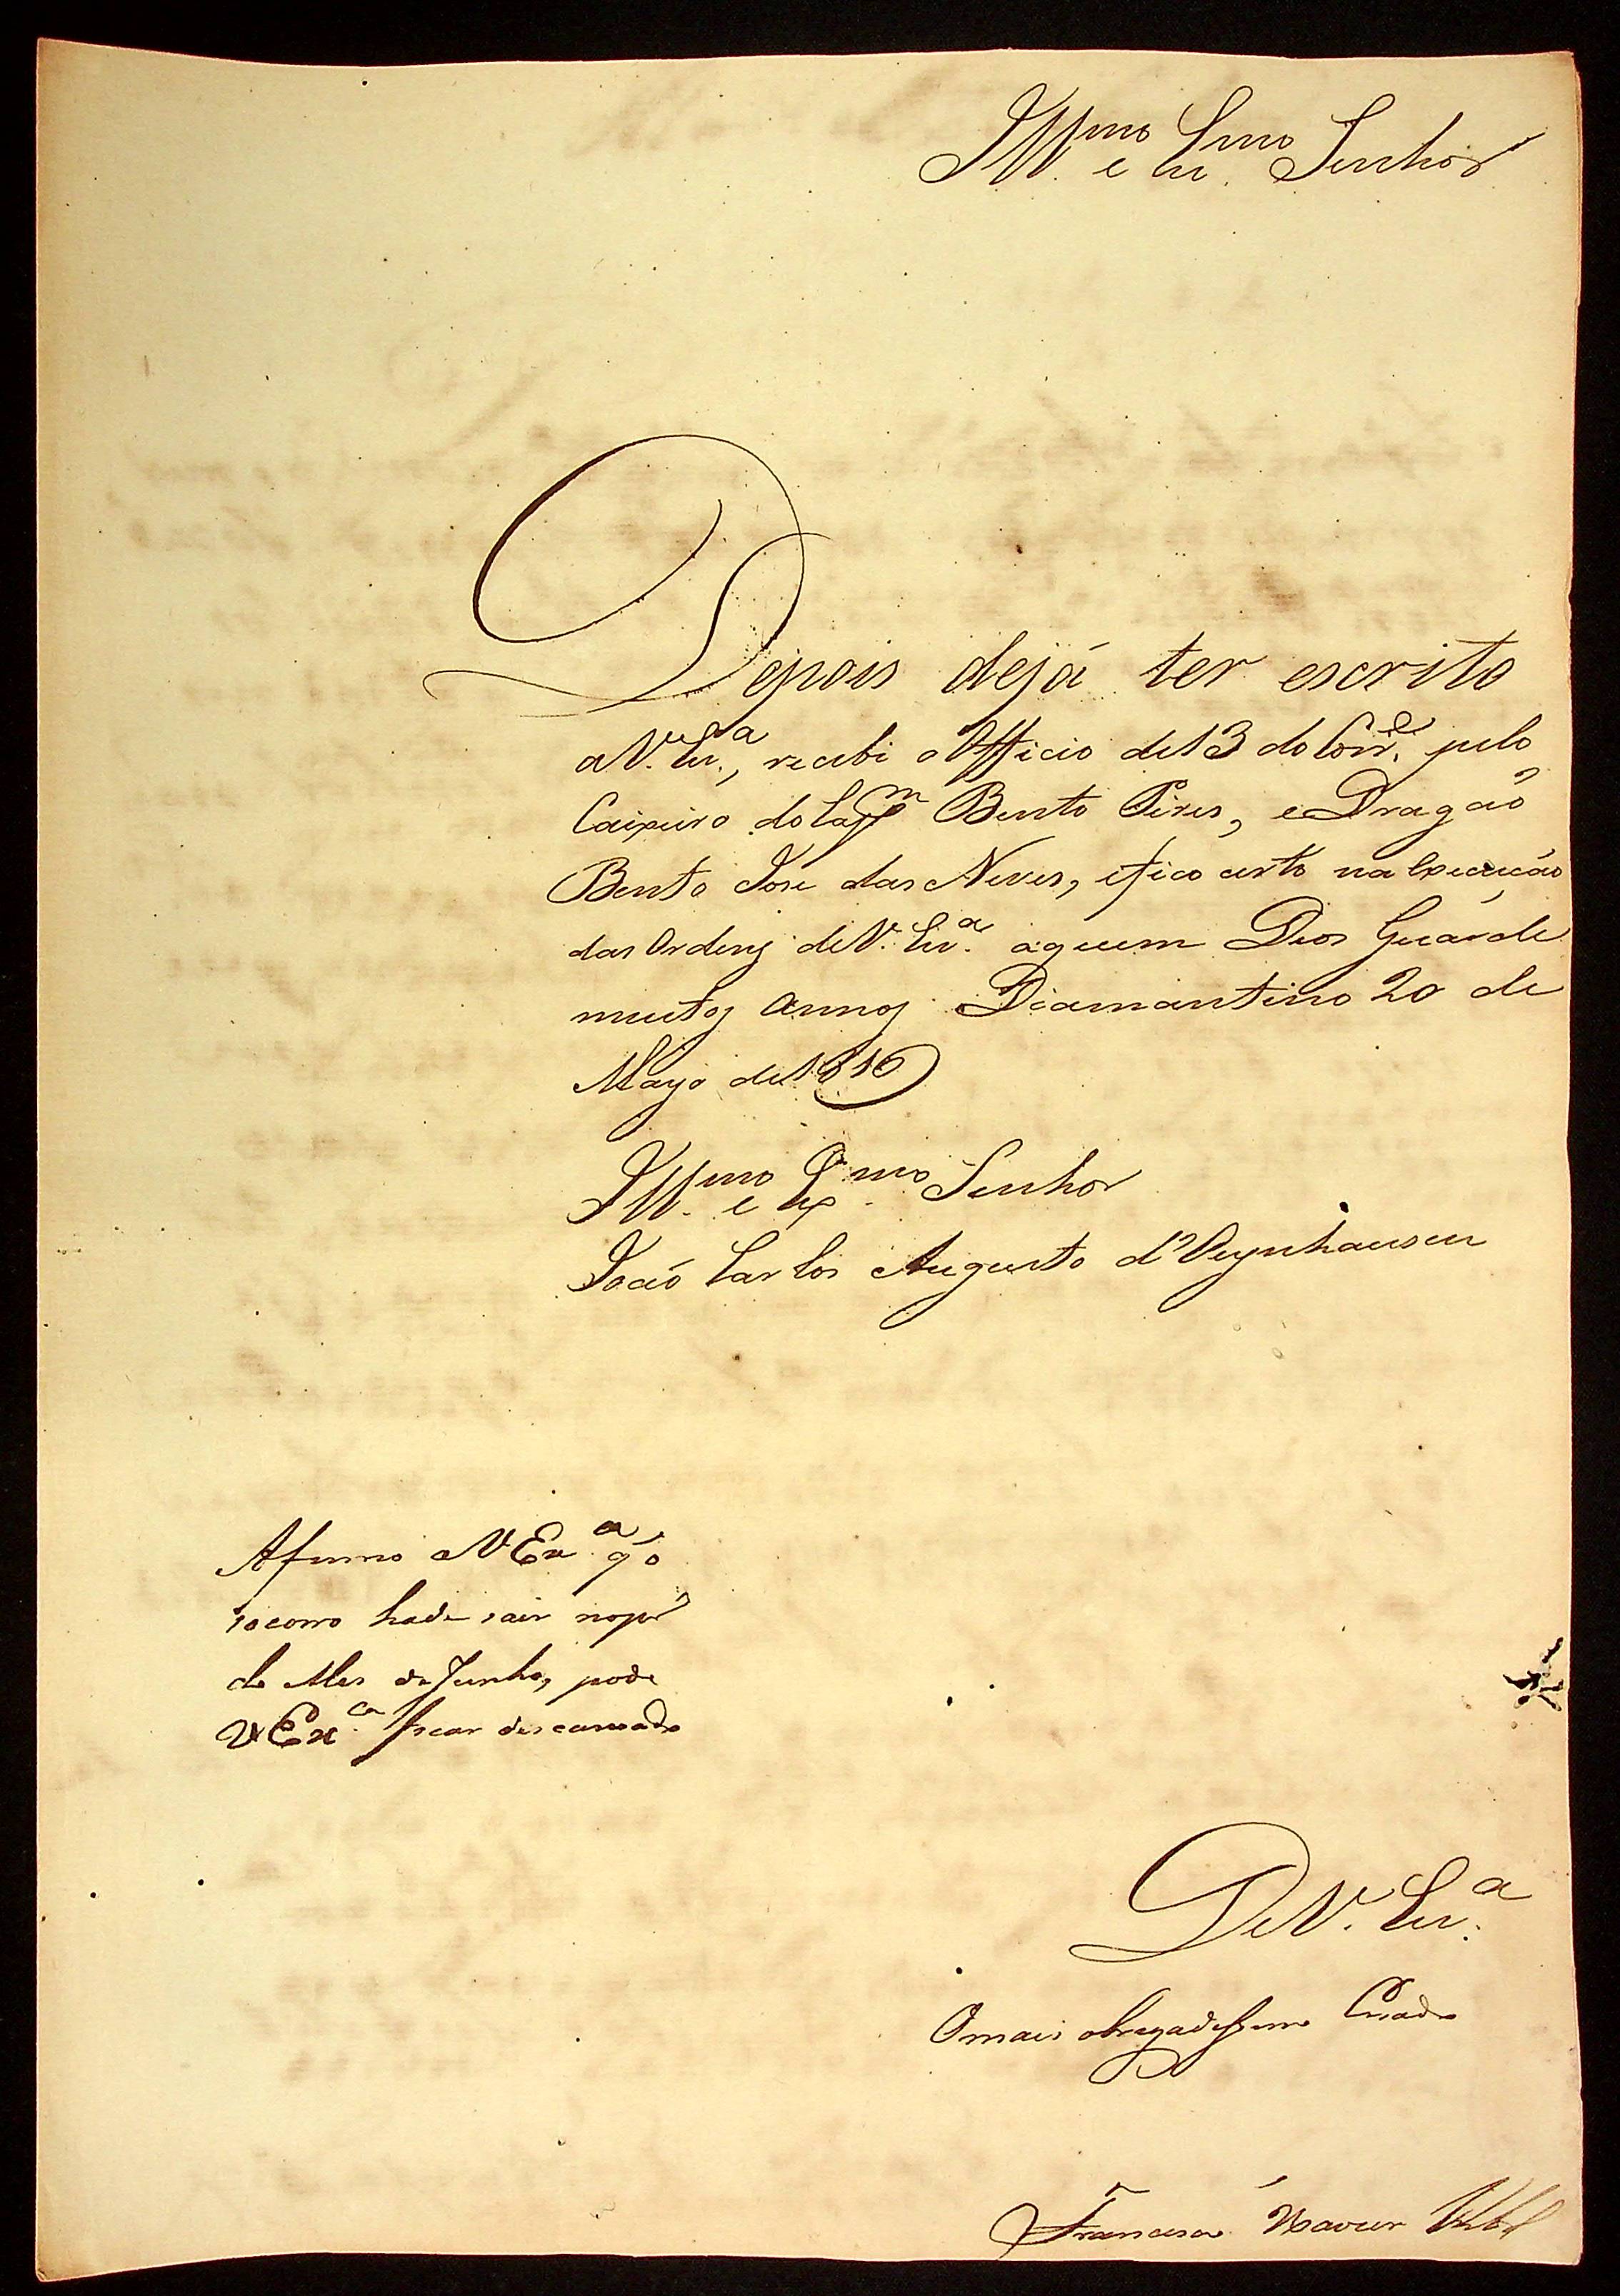 Ill.mo e Ex.mo Senhor
Depois dejá ter escrito
aV. Ex.a, recebi oOfficio de13 doCorr.e pelo
Caixeiro doCap.m Bento Pires, eDragaõ
Bento Jose das Neves, efico certo na Execuçaõ
das Ordens deV. Ex.a aquem Deos Guarde
muitos annos Diamantino 20 de
Mayo de1816
Ill.mo e Ex.mo Senhor
Joaõ Carlos Augusto d'Oeynhausen
Afirmo aVEx.a q̃ o
socorro hade sair nopr.o
do Mes deJunho, pode
VEx.ca ficar descansado
DeV. Ex.a
Omais obregadissimo Criado
Francisco Xavier